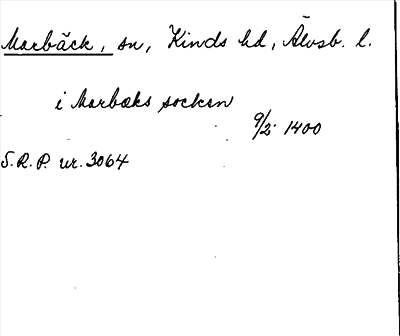 Marbäck, sn, Kinds hd, Älvsb. l.
i Marbæks sockon
9/2 1400
S.R.P. nr. 3064